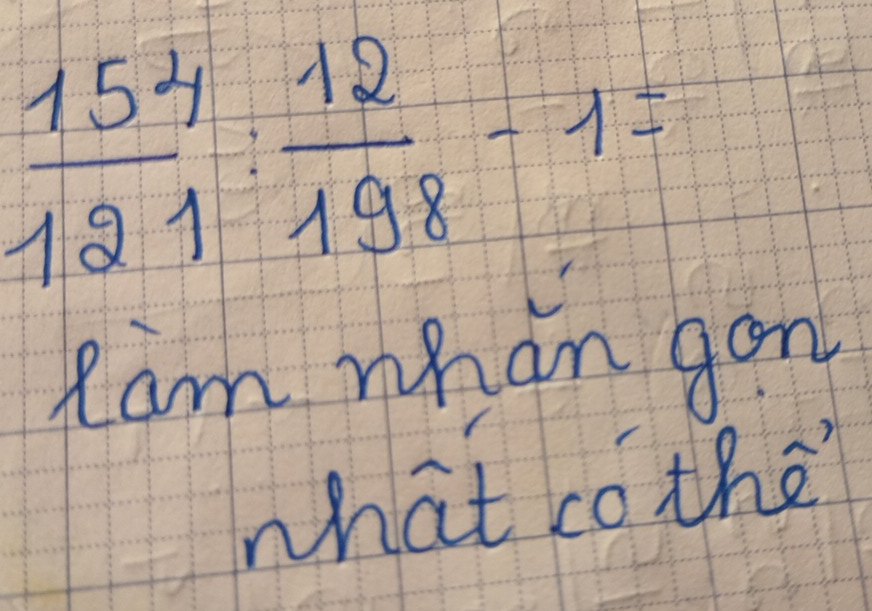 154/121 : 12/198 - 1 =
làm nhắn gọn
nhất có thể